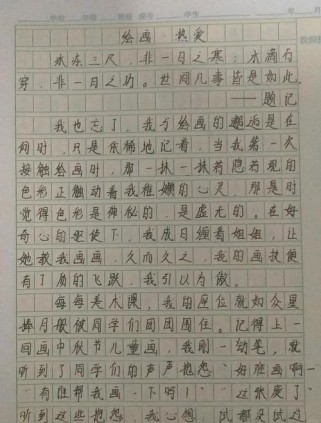 绘画·热爱
冰冻三尺，非一日之寒；水滴石
穿，非一日之功。世间凡事皆是如此。
——题记
我也忘了，我与绘画的邂逅是在
何时，只是依稀地记着，当我第一次
接触绘画时，那一抹一抹若隐若现的
色彩正触动着我稚嫩的心灵，那是时
觉得色彩是神秘的，是虚无的。在好
奇心的驱使下，我成日缠着姐姐，让
她教我画画，久而久之，我的画技便
有了质的飞跃，我引以为傲。
每每美术课，我的座位就如众星
捧月般被同学们团团围住。记得上一
回画中秋节儿童画，我刚一动笔，就
听到了同学们的声声抱怨："好难画啊一
""有谁帮我画一下吗！""这张废了
听到这些抱怨，我心想，试都没试过